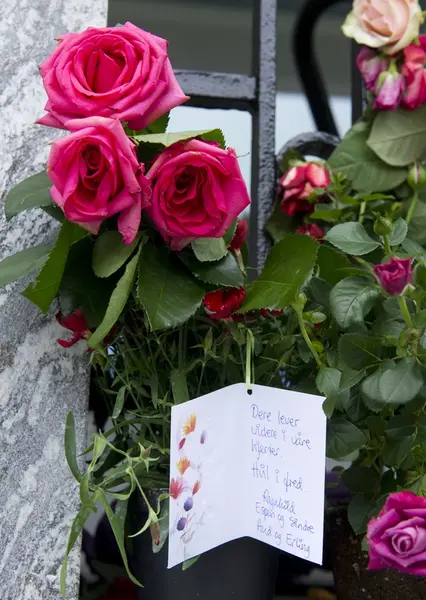 Dere lever
videre i våre
hjerter.
Hvil i fred
Ragnhild
Espen og Sindre
Aud og Erling